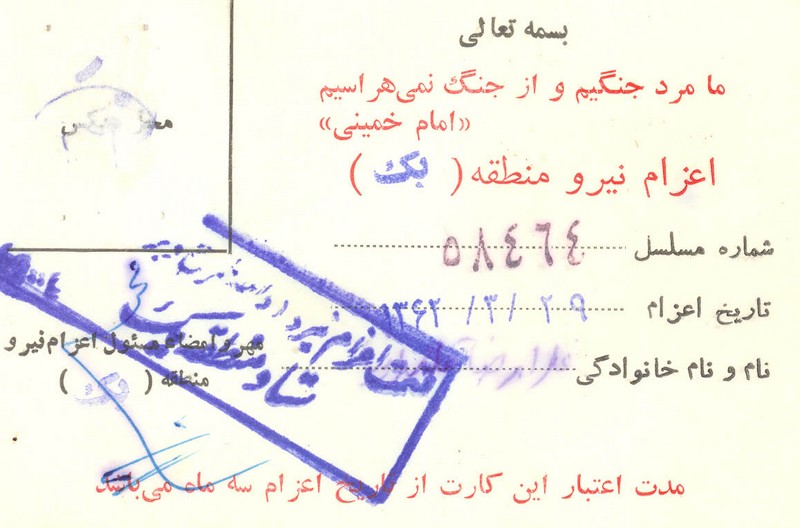 بسمه تعالی
ما مرد جنگیم و از جنگ نمی‌هراسیم
«امام خمینی»
اعزام نیرو منطقه ( یک )
شماره مسلسل ۵۸٤٦٤
تاریخ اعزام ۲۹ /۳/ ۱۳۶۲
نام و نام خانوادگی
محل عکس
مهر و امضاء مسئول اعزام نیرو
منطقه ( یک )
مدت اعتبار این کارت از تاریخ اعزام سه ماه می‌باشد